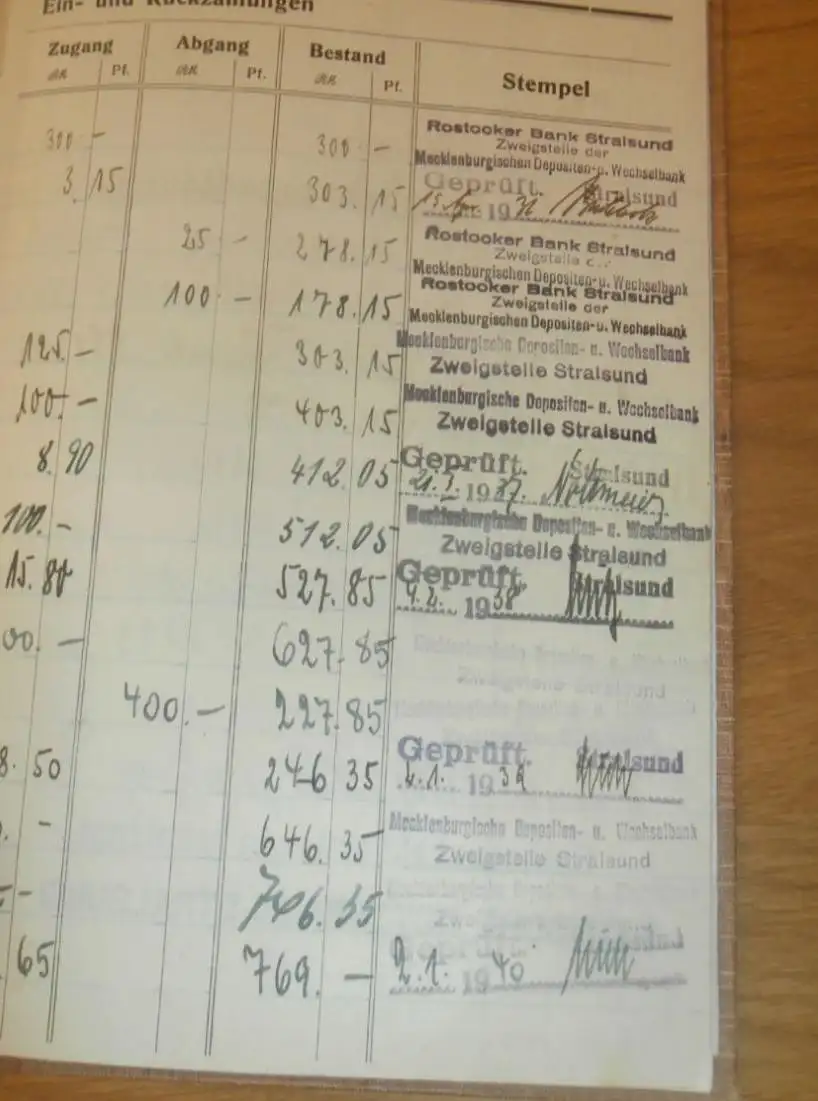 Ein- und Rückzahlungen
Zugang Abgang Bestand Stempel
RM Pf. RM Pf. RM Pf.
300 - 300 - Rostocker Bank Stralsund
Zweigstelle der
Mecklenburgischen Depositen- u. Wechselbank
3. 15 303. 15 Geprüft. Stralsund
19
25 - 278. 15 Rostocker Bank Stralsund
Zweigstelle
Mecklenburgischen Depositen- u. Wechselbank
100 - 178. 15 Rostocker Bank Stralsund
Zweigstelle der
Mecklenburgischen Depositen- u. Wechselbank
125. - 303. 15 Mecklenburgische Depositen- u. Wechselbank
Zweigstelle Stralsund
100. - 403. 15 Mecklenburgische Depositen- u. Wechselbank
Zweigstelle Stralsund
8. 90 412. 05 Geprüft. Stralsund
21. 1937.
100. - 512. 05 Mecklenburgische Depositen- u. Wechselbank
Zweigstelle Stralsund
15. 80 527. 85 Geprüft. Stralsund
4. 2. 1938
00. - 627. 85 Zweigstelle Stralsund
400. - 227. 85
8. 50 246 35 Geprüft. Stralsund
2. 1. 1939
. - 646. 35 Mecklenburgische Depositen- u. Wechselbank
Zweigstelle Stralsund
- 746. 35
65 769. - Geprüft Stralsund
2. 1. 1940